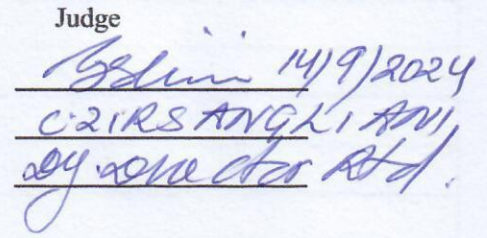 Judge
14/9/2024
C. ZIRSANGLIANI,
Dy. Director Rtd.